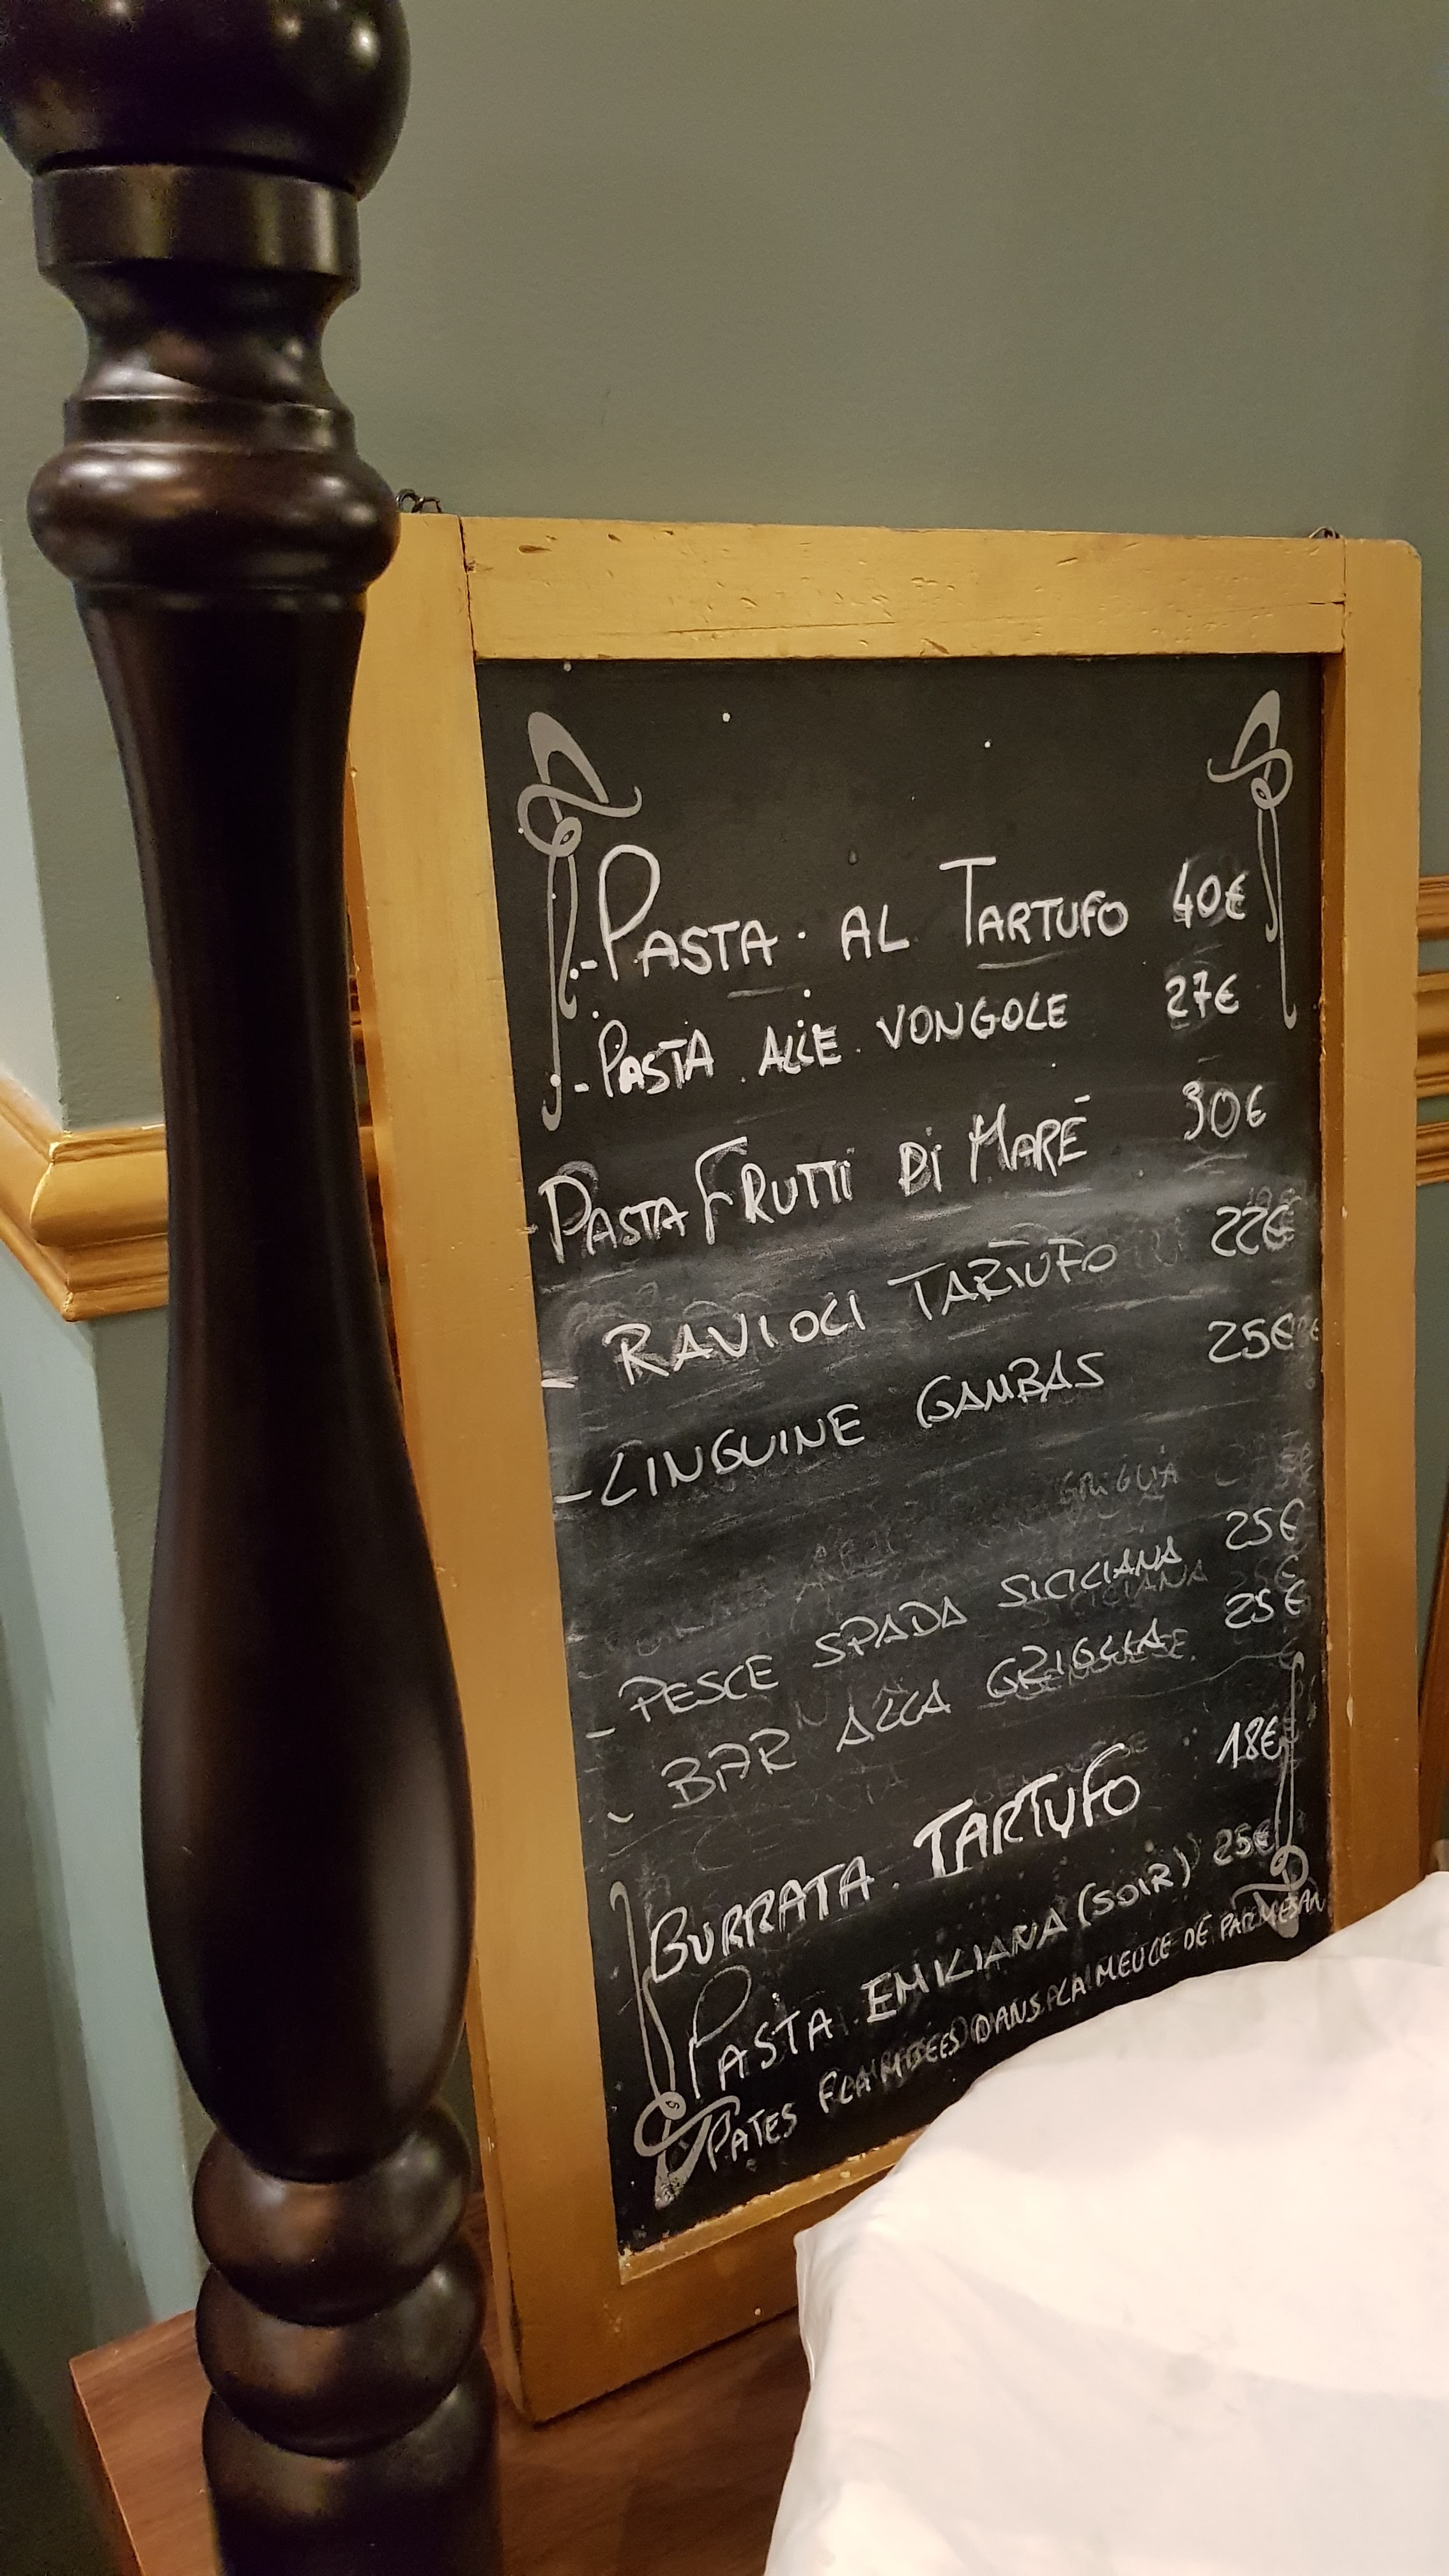 - PASTA AL TARTUFO 40€
- PASTA ALLE VONGOLE 27€
- PASTA FRUTTI DI MARE 30€
- RAVIOLI TARTUFO 22€
- LINGUINE GAMBAS 25€
GRIGLIA
- PESCE SPADA SICILIANA 25€
- BAR ALLA GRIGLIA 25€
BURRATA TARTUFO 18€
PASTA EMILIANA (SOIR) 25€
PATES FLAMBÉES DANS LA MEULE DE PARMESAN